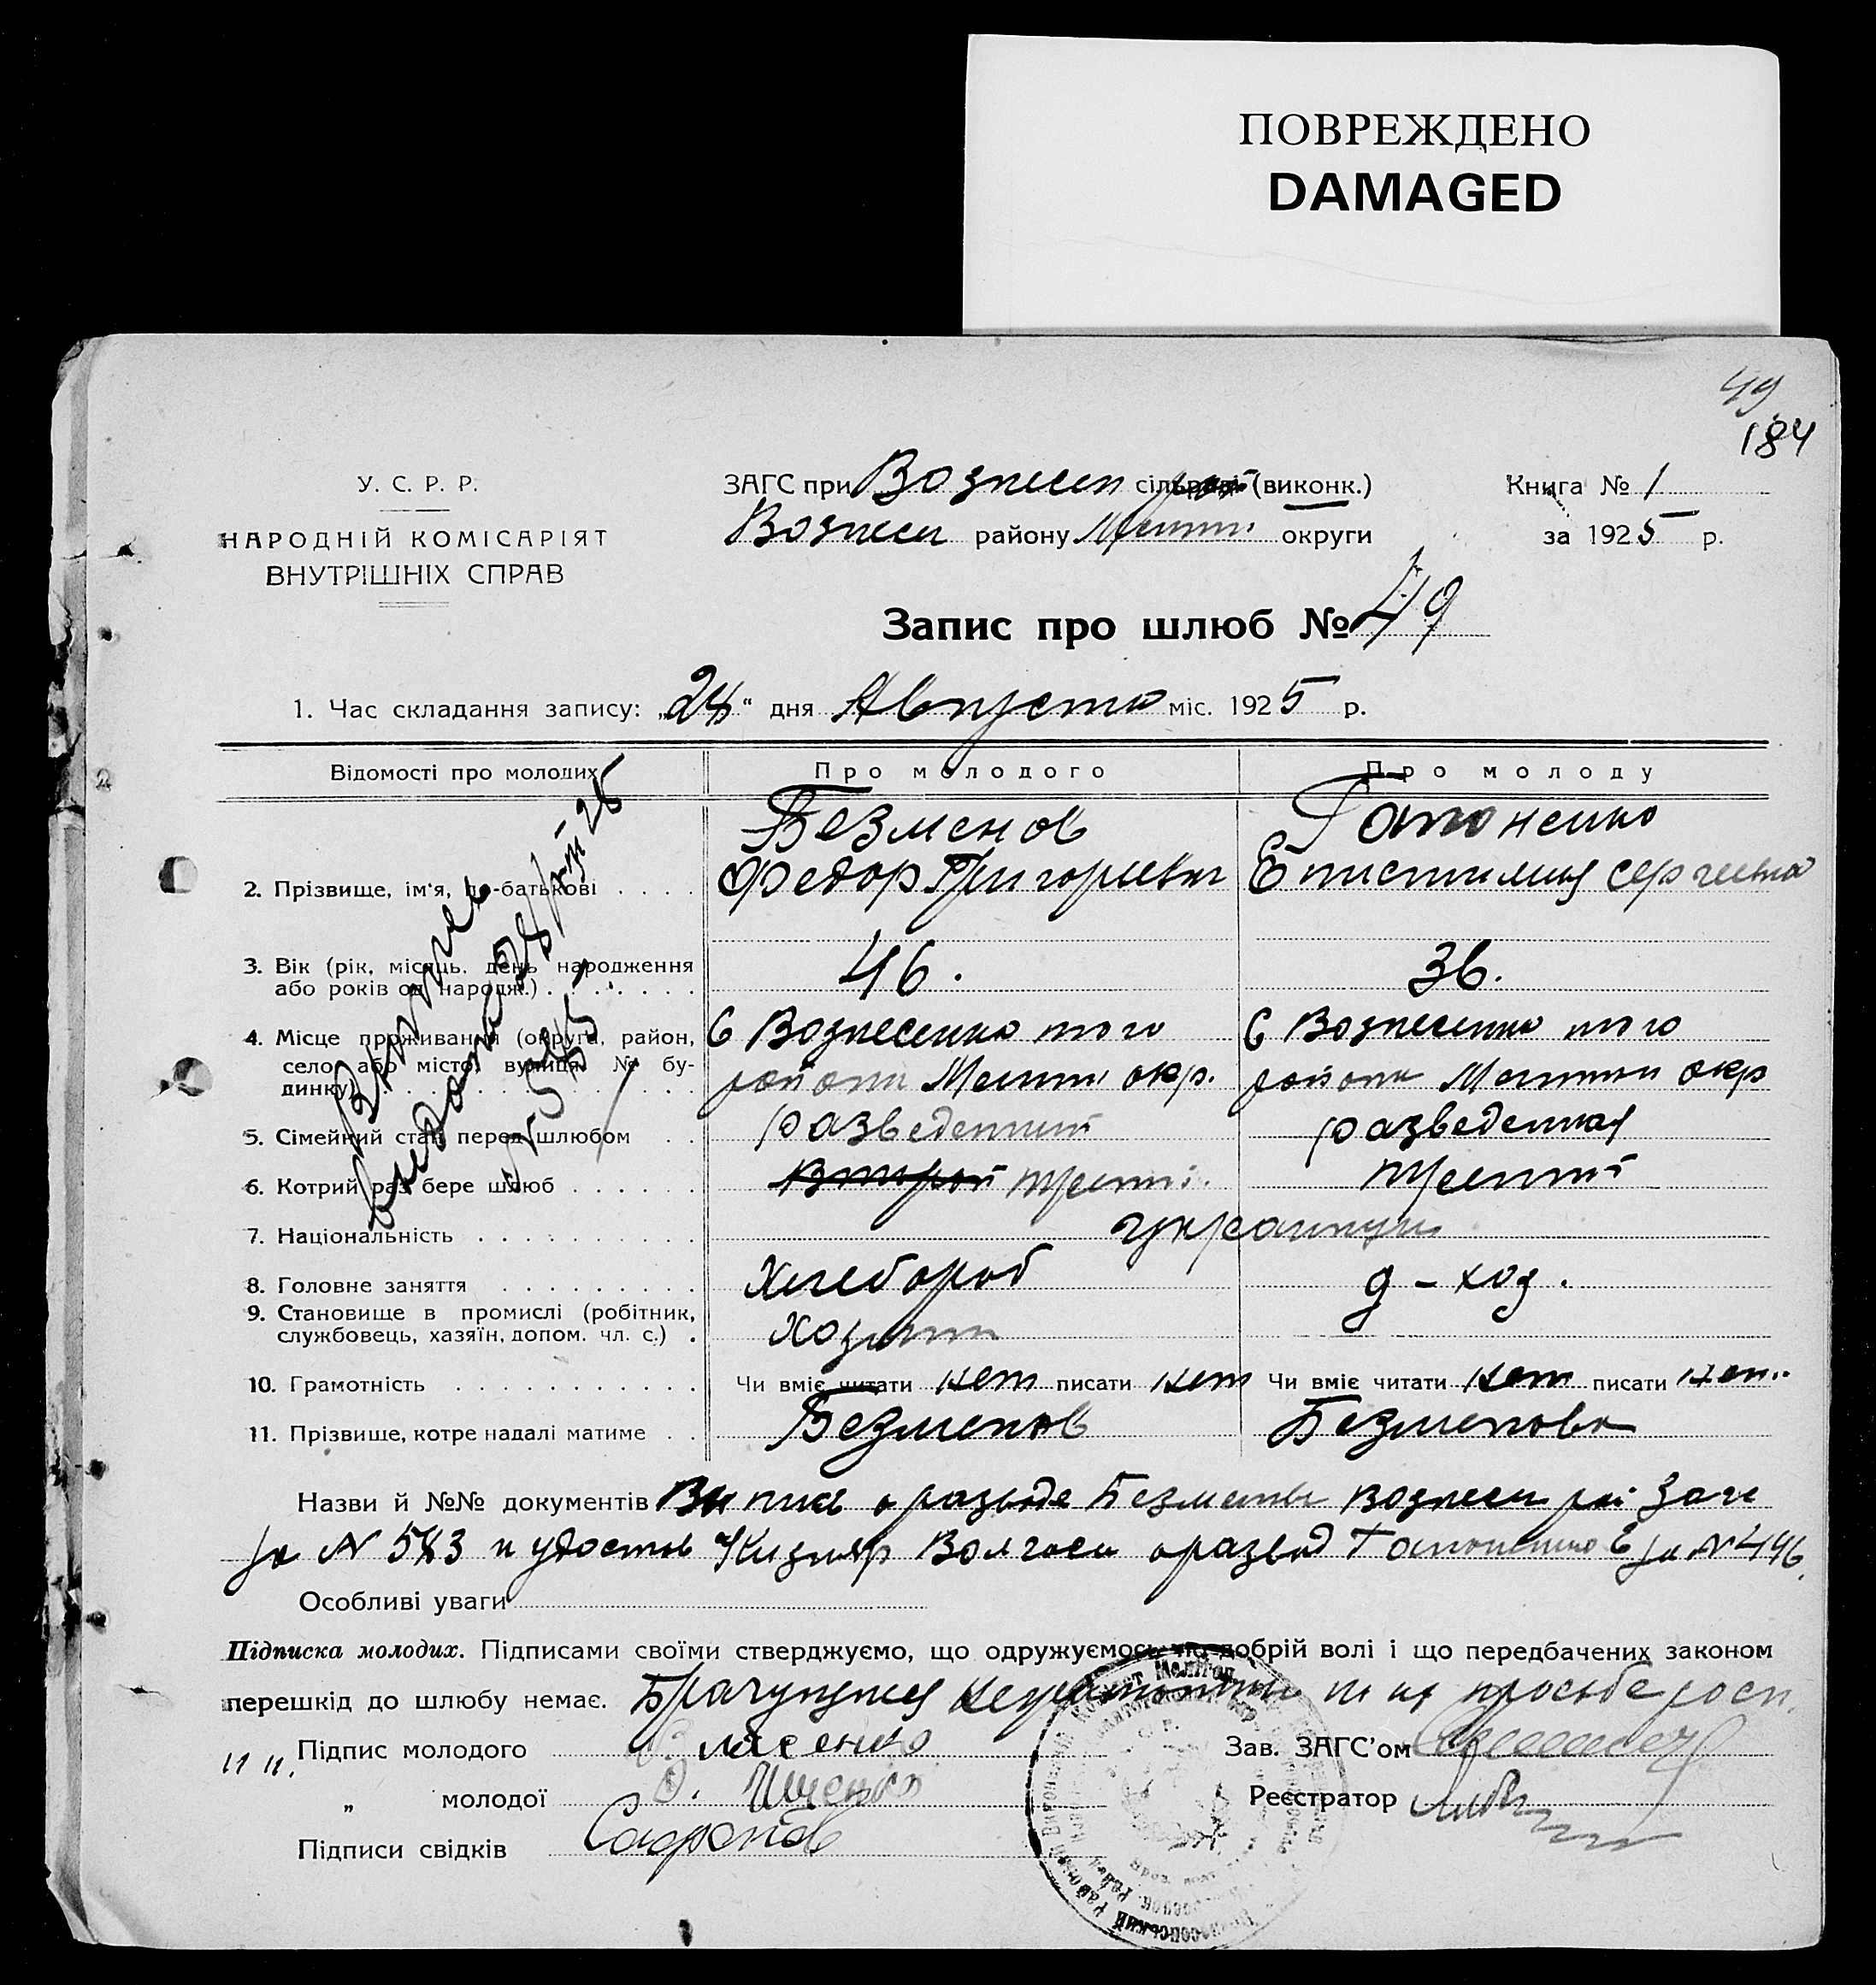 ПОВРЕЖДЕНО
DAMAGED
49
184
У. С. Р. Р.
НАРОДНІЙ КОМІСАРІЯТ
ВНУТРІШНІХ СПРАВ
ЗАГС при Вознесен сільради (виконк.)
Вознесен району Мелит. округи
Книга № 1
за 1925 р.
Запис про шлюб № 49
1. Час складання запису: „28“ дня Августа міс. 1925 р.
Відомості про молодих
Про молодого
Про молоду
2. Прізвище, ім'я, по-батькові
Безменов
Федор Григорьевич
Гапоненко
Епистимия Сергеевна
3. Вік (рік, місяць, день народження
або років од народж.)
46.
36.
4. Місце проживання (округа, район,
село або місто, вулиця, № бу-
динку)
С Вознесенка того
района Мелит окр.
С Вознесенка того
района Мелитоп окр
5. Сімейний стан перед шлюбом
разведенный
разведенная
6. Котрий раз бере шлюб
второй третий.
третий
7. Національність
украинцы
8. Головне заняття
Хлебороб
д-хоз.
9. Становище в промислі (робітник,
службовець, хазяїн, допом. чл. с.)
Хозяин
10. Грамотність
Чи вміє читати нет писати нет
Чи вміє читати нет писати нет.
11. Прізвище, котре надалі матиме
Безменов
Безменова
Выпись
выдана 28/VIII 25
№ 585
Назви й №№ документів Выпись о разводе Безменов Вознесен рай Загс
за N 583 и удостов Кизляр о развод Гапоненко Е за N 446.
Особливі уваги
Підписка молодих. Підписами своїми стверджуємо, що одружуємось по добрій волі і що передбачених законом
перешкід до шлюбу немає. Брачущиеся неграмотны и их просьбе расп.
Підпис молодого Власенко
„ молодої О. Ищенко
Підписи свідків Сафонов
Зав. ЗАГС'ом
Реєстратор